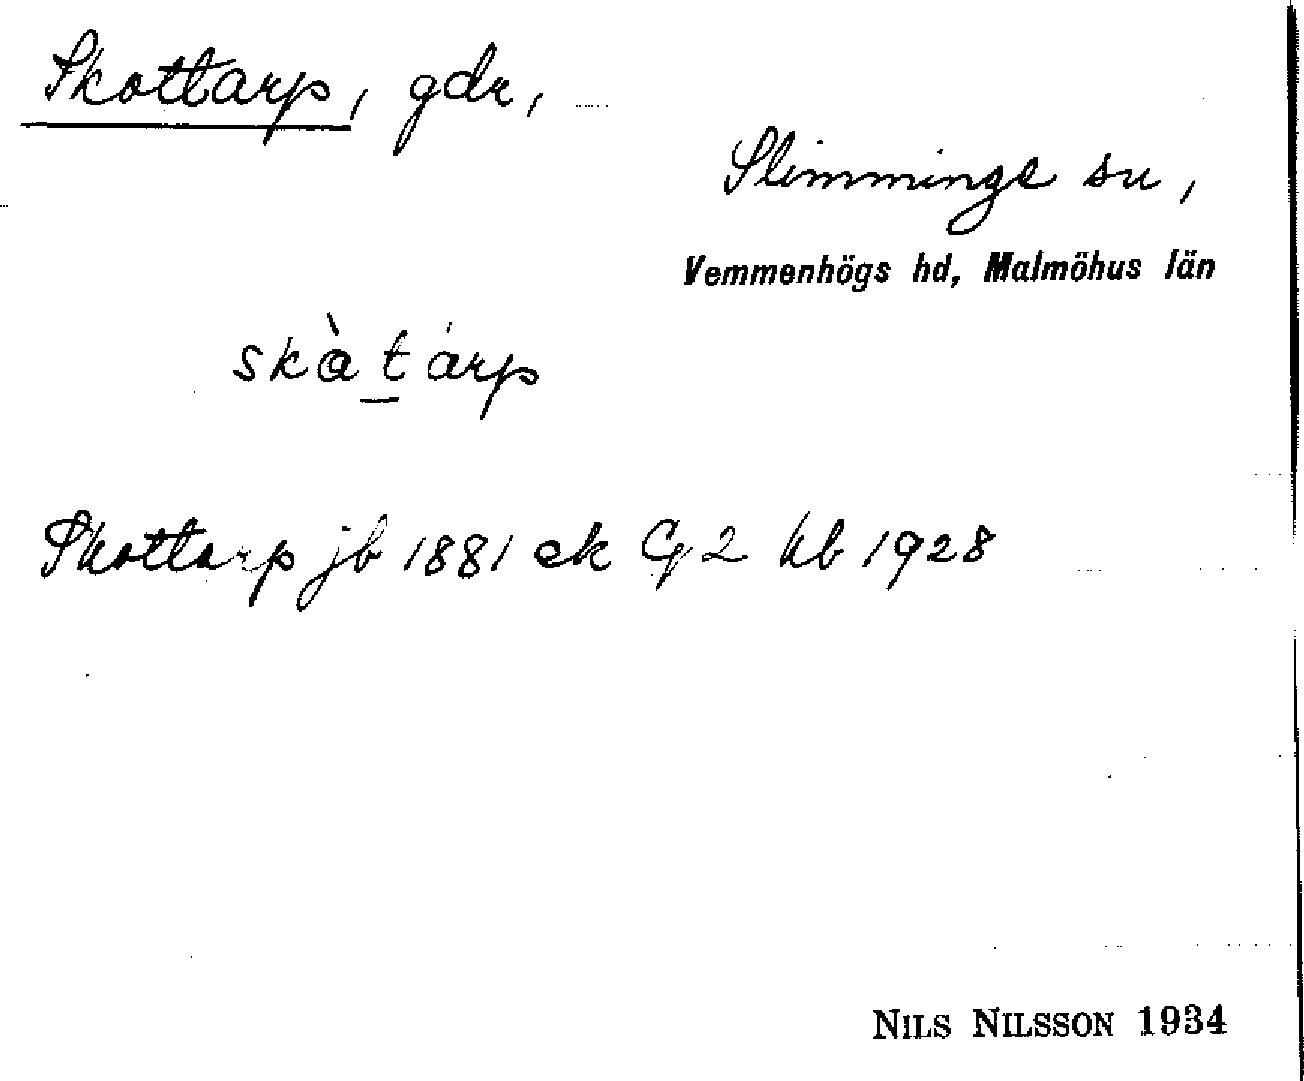 Skottarp, gdr,
Slimminge sn,
Vemmenhögs hd, Malmöhus län
skàtárp
Skottarp jb 1881 ek G 2 kb 1928
NILS NILSSON 1934